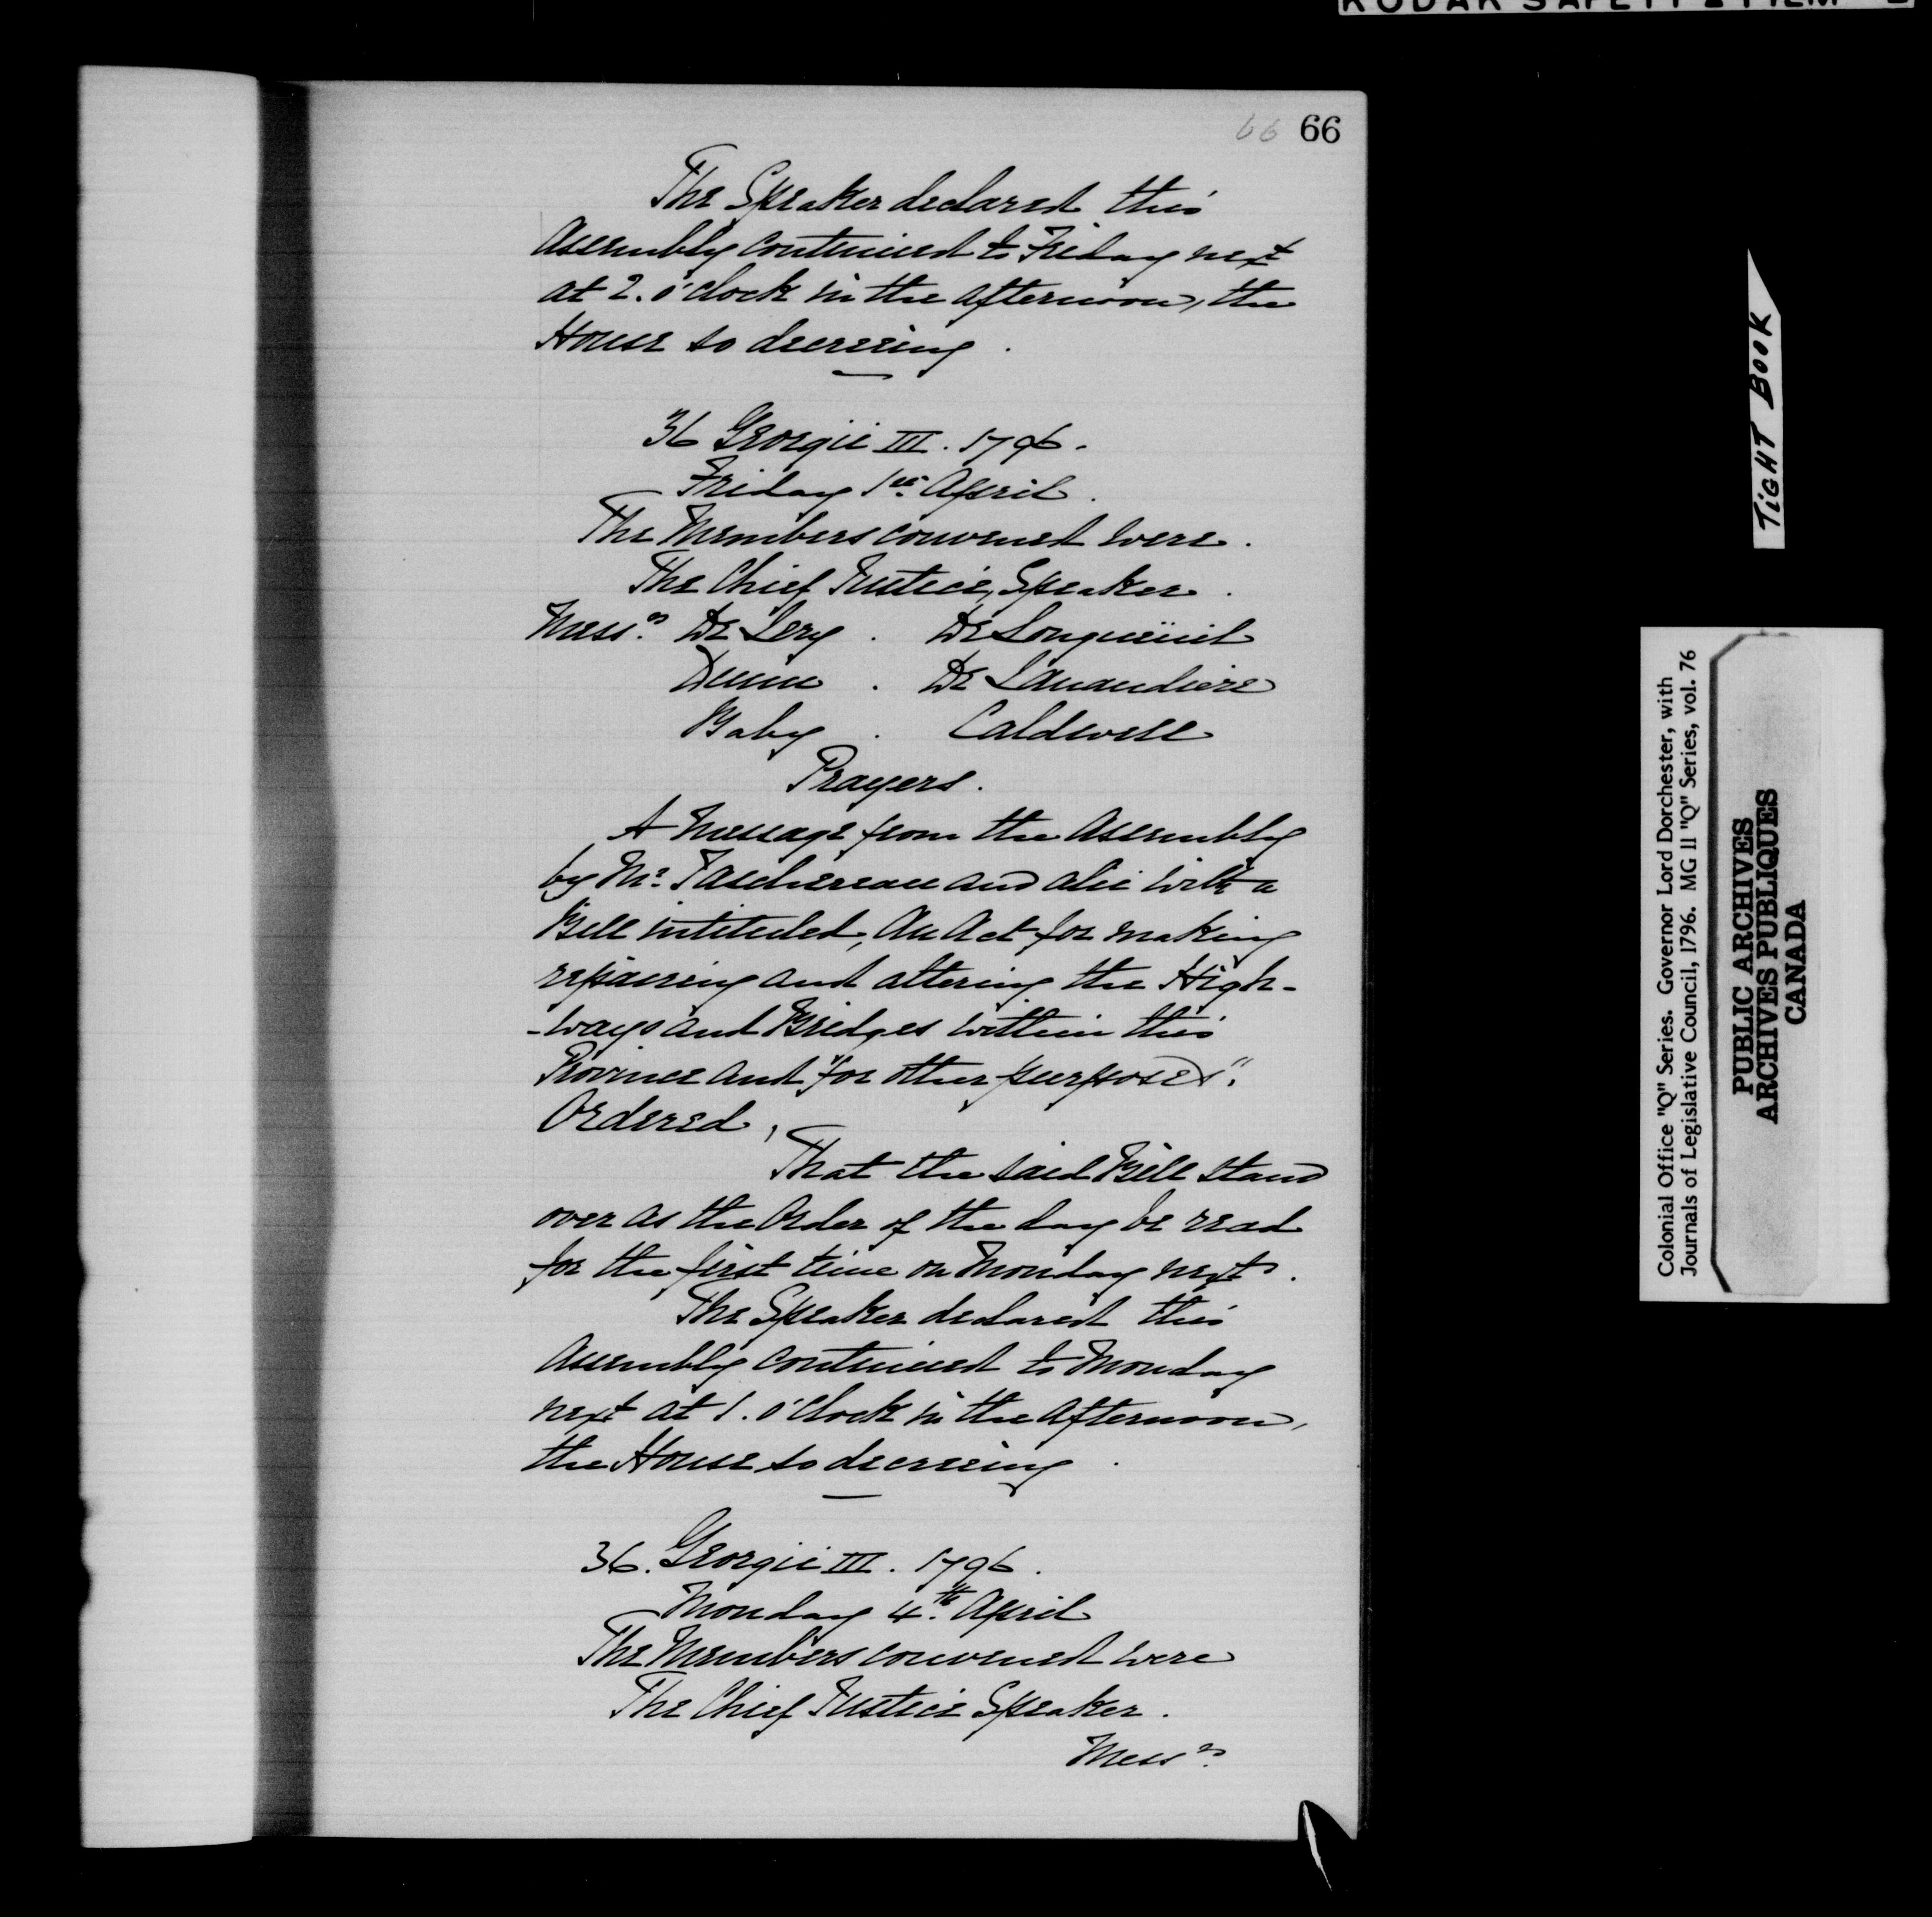 KODAK SAFETY FILM
66 66
The Speaker declared this
Assembly continued to Friday next
at 2. o'clock in the afternoon, the
House so decreeing.
36 Georgii III. 1796.
Friday 1st. April.
The Members convened were.
The Chief Justice, Speaker.
Messrs. De Lery . De Longueüil
Dunn . De Lanaudiere
Baby . Caldwell
Prayers.
A Message from the Assembly
by Mr. Taschereau and alii with a
Bill intituled, "An Act for making
repairing and altering the High-
-ways and Bridges within this
Province and "for other purposes".
Ordered,
That the said Bill stand
over as the Order of the day be read
for the first time on Monday next.
The Speaker declared this
Assembly continued to Monday
next at 1. o'clock in the afternoon,
the House so decreeing.
36. Georgii III. 1796.
Monday 4th. April
The Members convened were
The Chief Justice Speaker.
Messrs.
TIGHT BOOK
Colonial Office "Q" Series. Governor Lord Dorchester, with
Journals of Legislative Council, 1796. MG 11 "Q" Series, vol. 76
PUBLIC ARCHIVES
ARCHIVES PUBLIQUES
CANADA